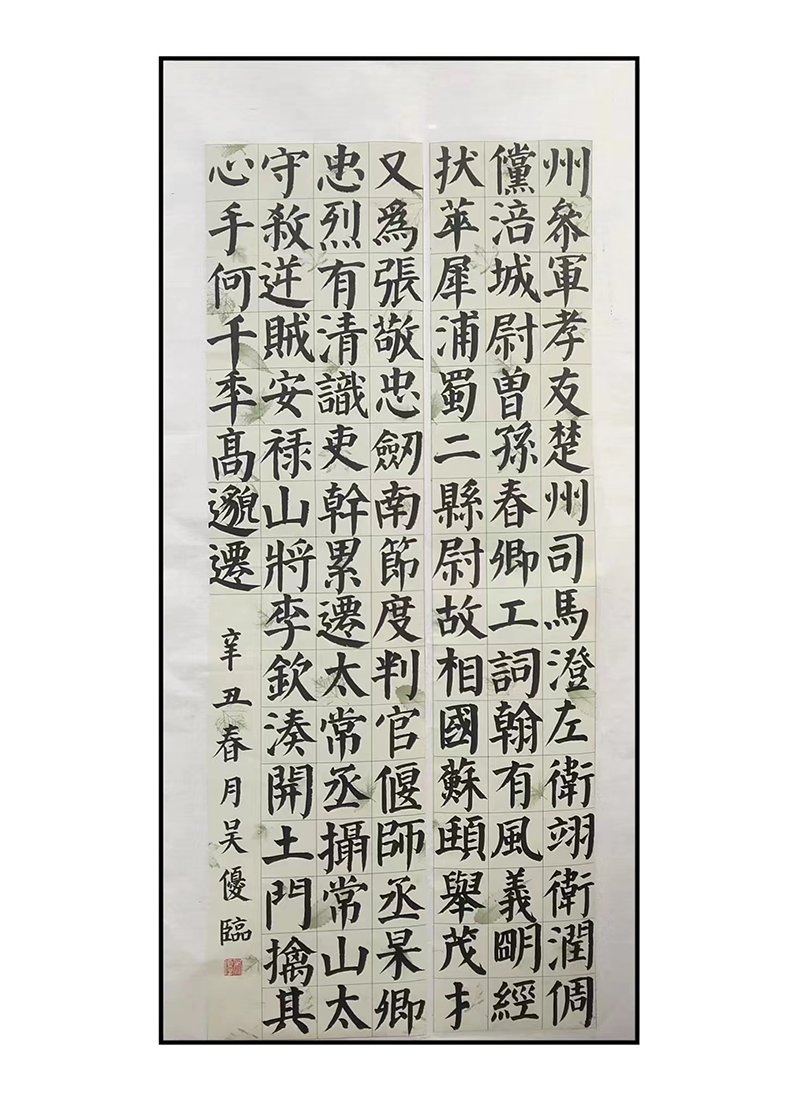 州叅軍孝友楚州司馬澄左衛翊衛潤倜
儻涪城尉曾孫春卿工詞翰有風義明經
拔萃犀浦蜀二縣尉故相國蘇頲舉茂才
又爲張敬忠劒南節度判官偃師丞杲卿
忠烈有清識吏幹累遷太常丞攝常山太
守殺逆賊安禄山將李欽湊開土門擒其
心手何千年高邈遷
辛丑春月吴優臨